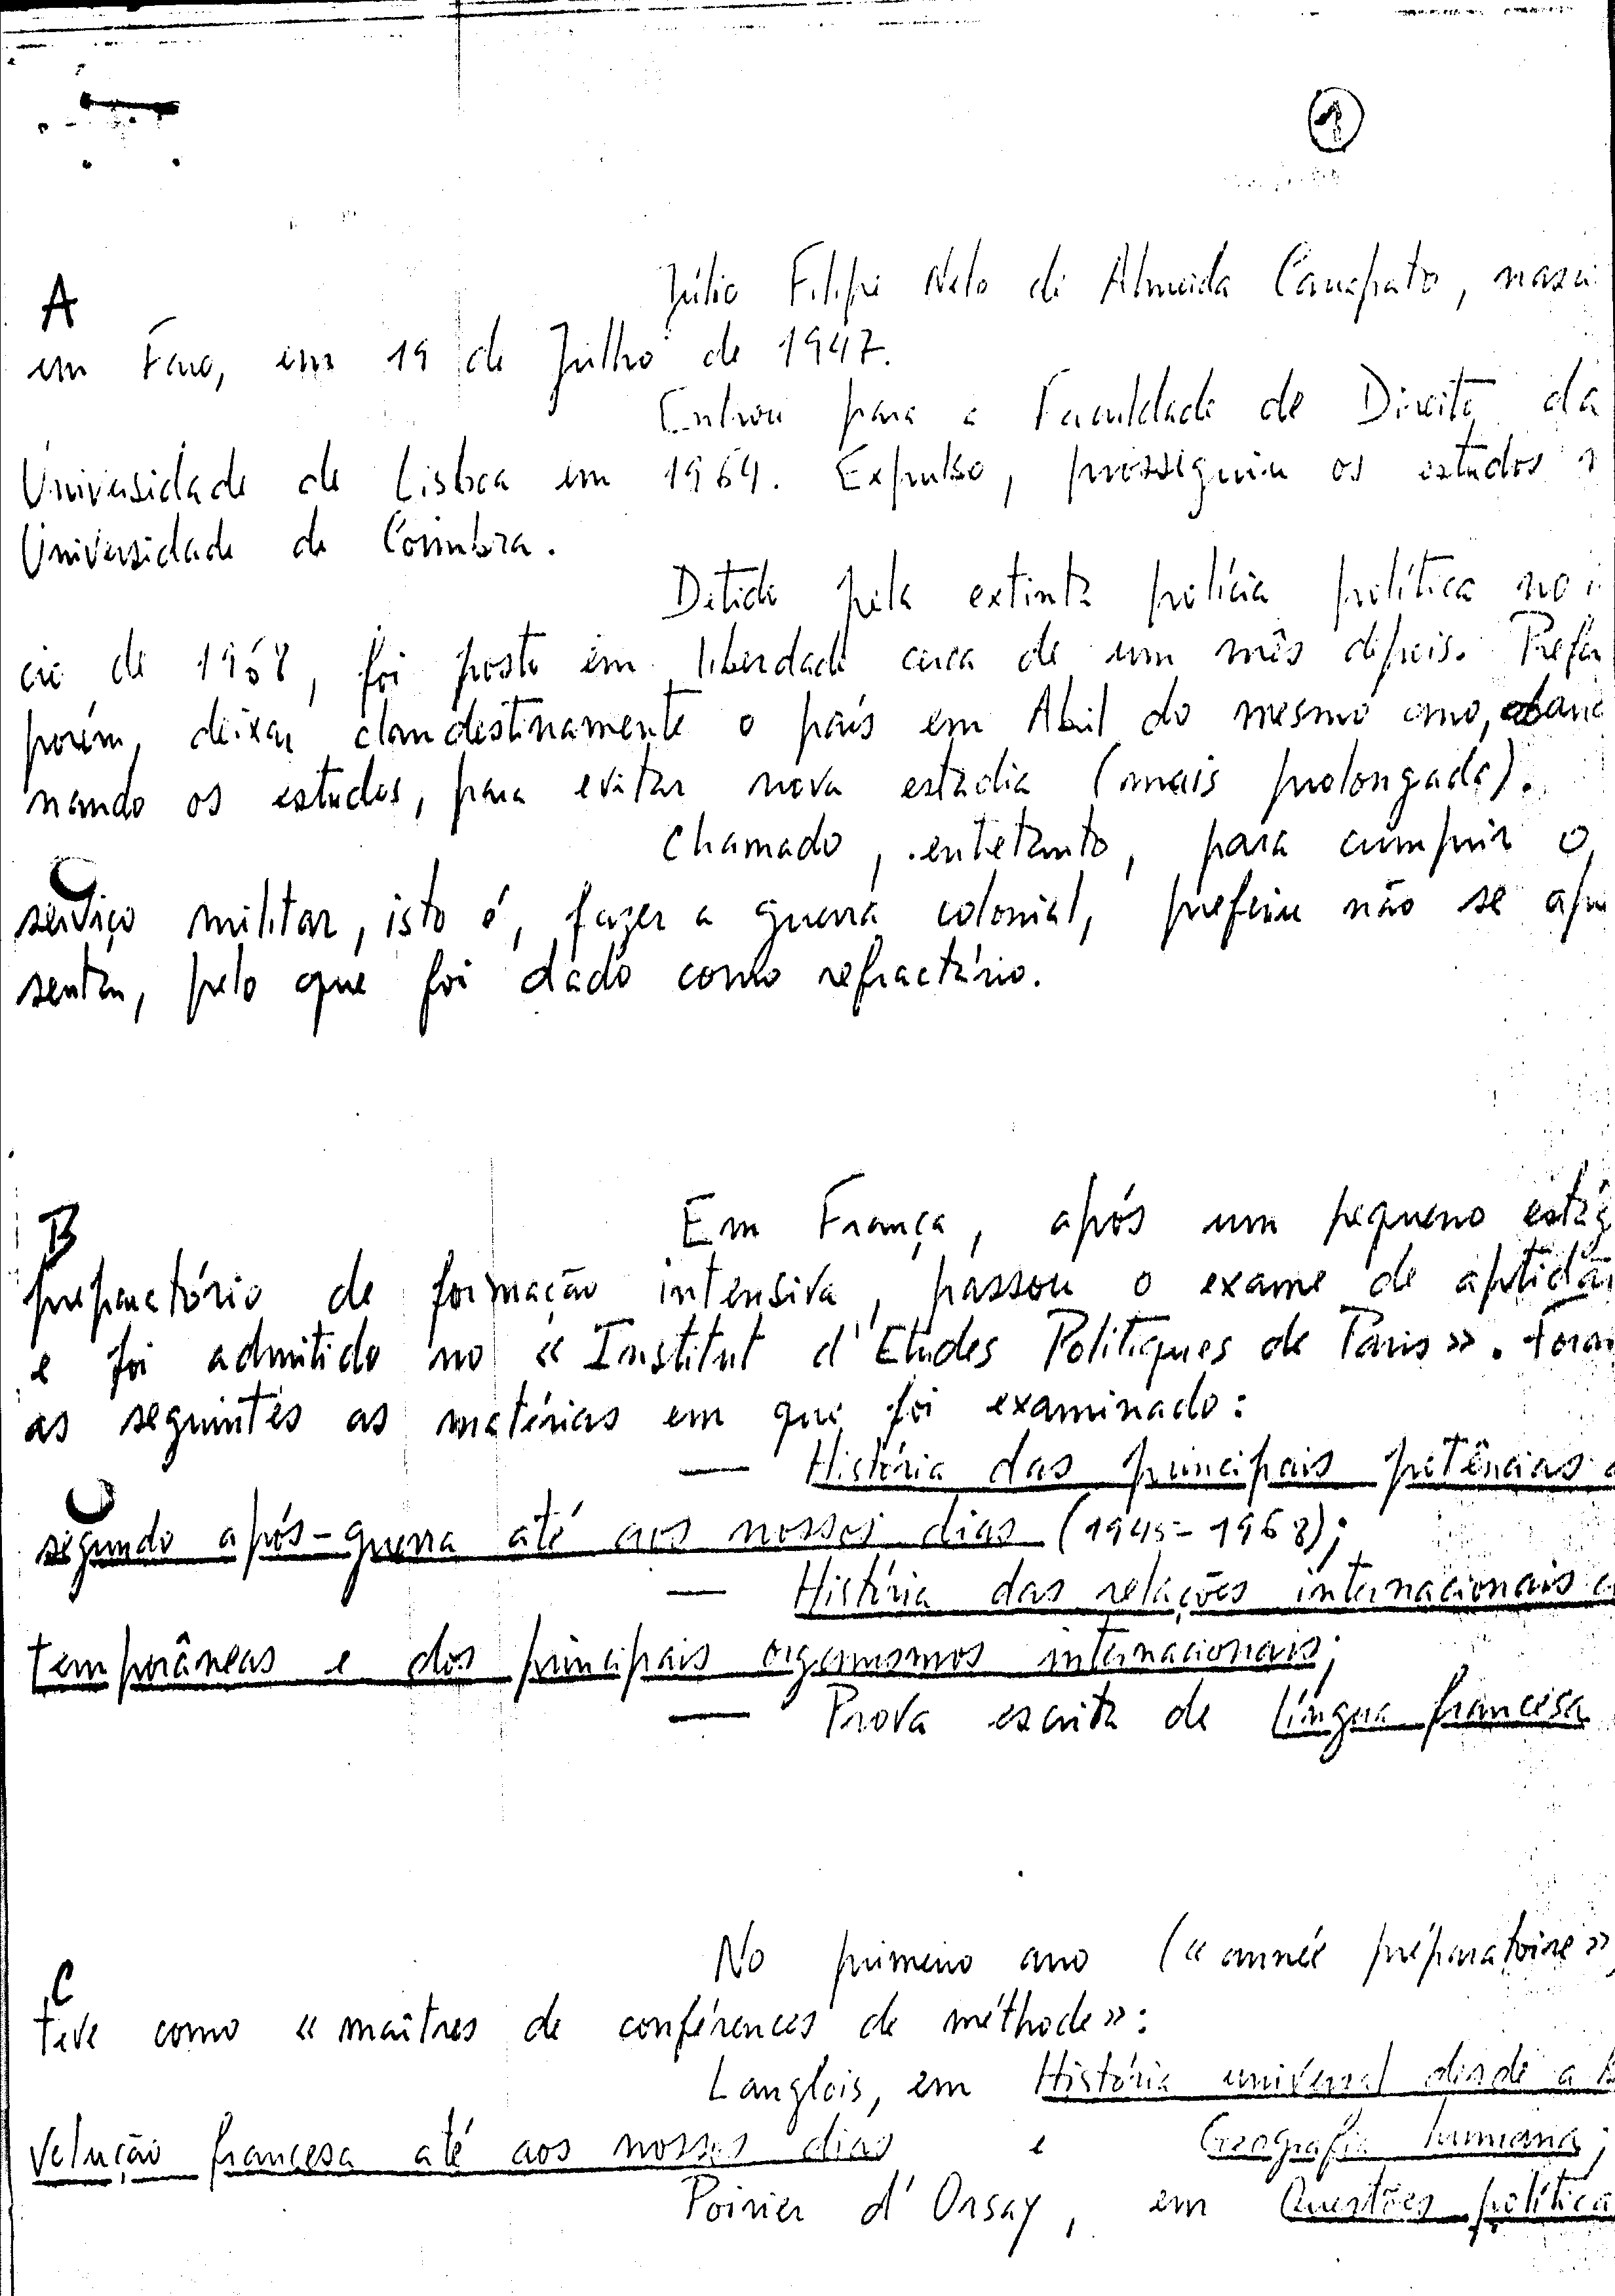 1
A
Júlio Filipe Neto de Almeida Carrapato, nasceu
em Faro, em 19 de Julho de 1947.
Entrou para a Faculdade de Direito da
Universidade de Lisboa em 1964. Expulso, prosseguiu os estudos n
Universidade de Coimbra.
Detido pela extinta polícia política no i
cio de 1968, foi posto em liberdade cerca de um mês depois. Prefer
porém, deixar clandestinamente o país em Abril do mesmo ano, aband
nando os estudos, para evitar nova estadia (mais prolongada).
Chamado, entretanto, para cumprir o
serviço militar, isto é, fazer a guerra colonial, preferiu não se apre
sentar, pelo que foi dado como refractário.
B
Em França, após um pequeno estág
preparatório de formação intensiva, passou o exame de aptidão
e foi admitido no « Institut d'Etudes Politiques de Paris ». Foram
as seguintes as matérias em que foi examinado:
— História das principais potências d
segundo após-guerra até aos nossos dias (1945-1968);
— História das relações internacionais co
temporâneas e dos principais organismos internacionais;
— Prova escrita de língua francesa
C
No primeiro ano (« année préparatoire »)
teve como « maîtres de conférences de méthode »:
Langlois, em História universal desde a R
volução francesa até aos nossos dias e Geografia humana;
Poirier d'Orsay, em Questões política